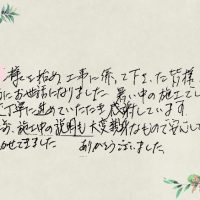 様を始め、工事に係って下さった皆様
にお世話になりました 暑い中の施工でし
丁寧に進めていただき感謝しています
施工中の説明も大変親切なもので安心して
かせてきました ありがとうございました。